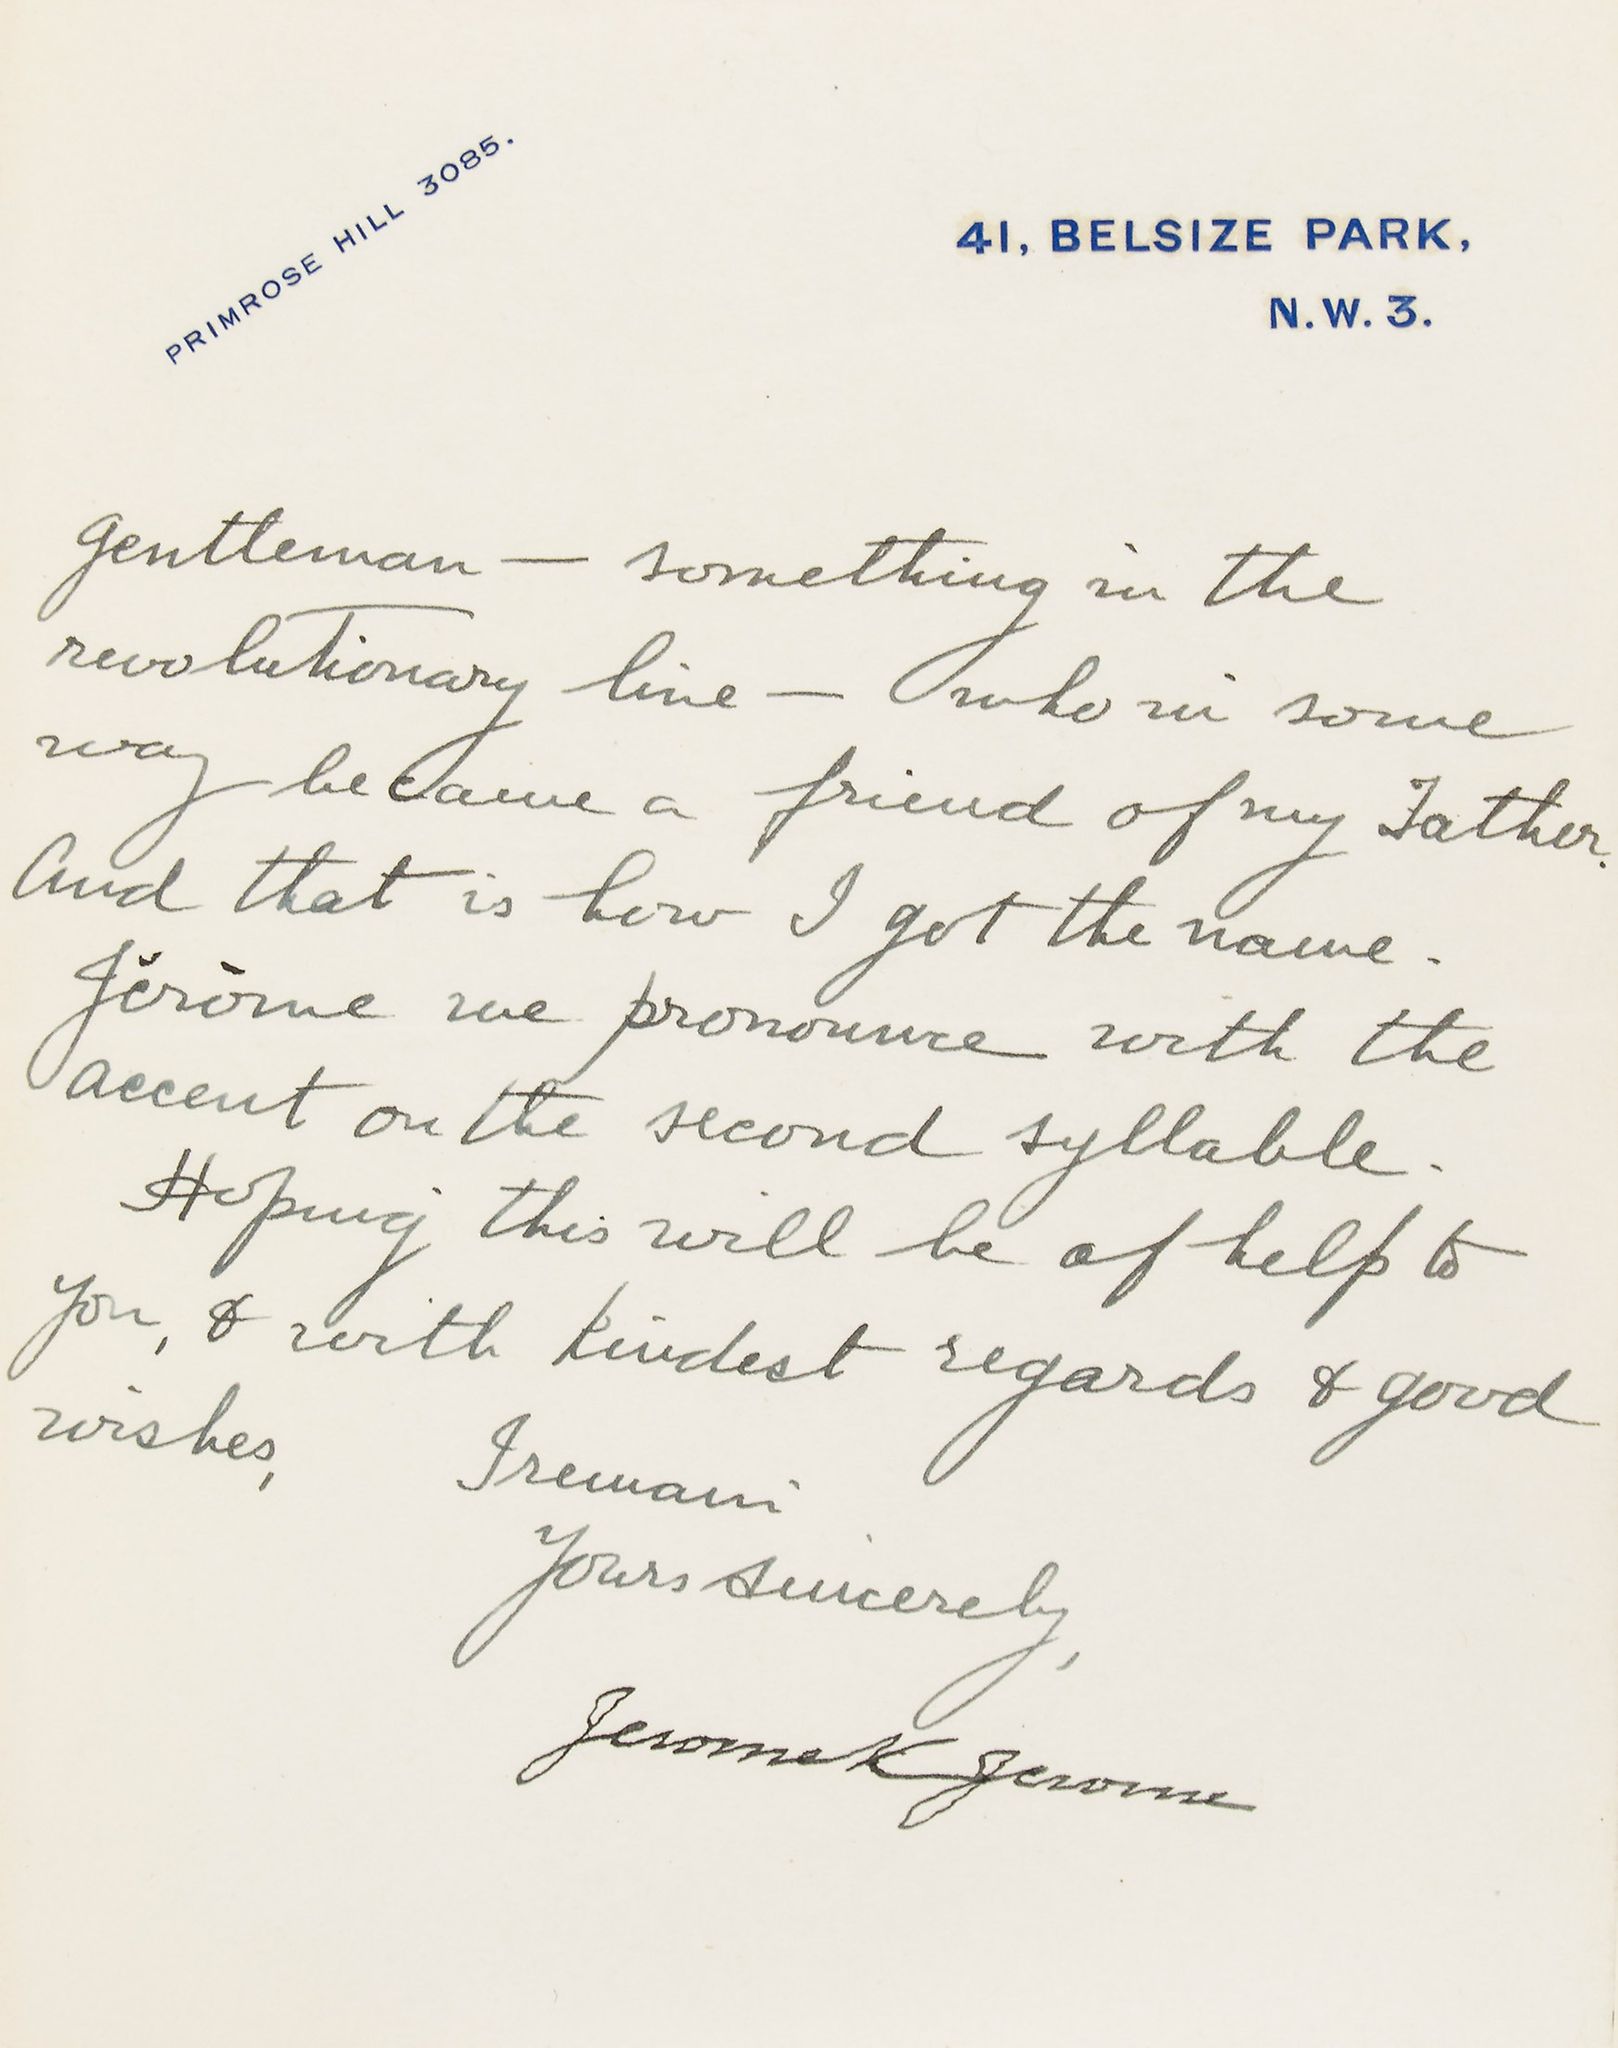 PRIMROSE HILL 3085.
41, BELSIZE PARK,
N.W. 3.
gentleman — something in the
revolutionary line — who in some
way became a friend of my Father.
And that is how I got the name.
Jĕrōme we pronounce with the
accent on the second syllable.
Hoping this will be of help to
you, & with kindest regards & good
wishes, I remain
Yours sincerely,
Jerome K Jerome